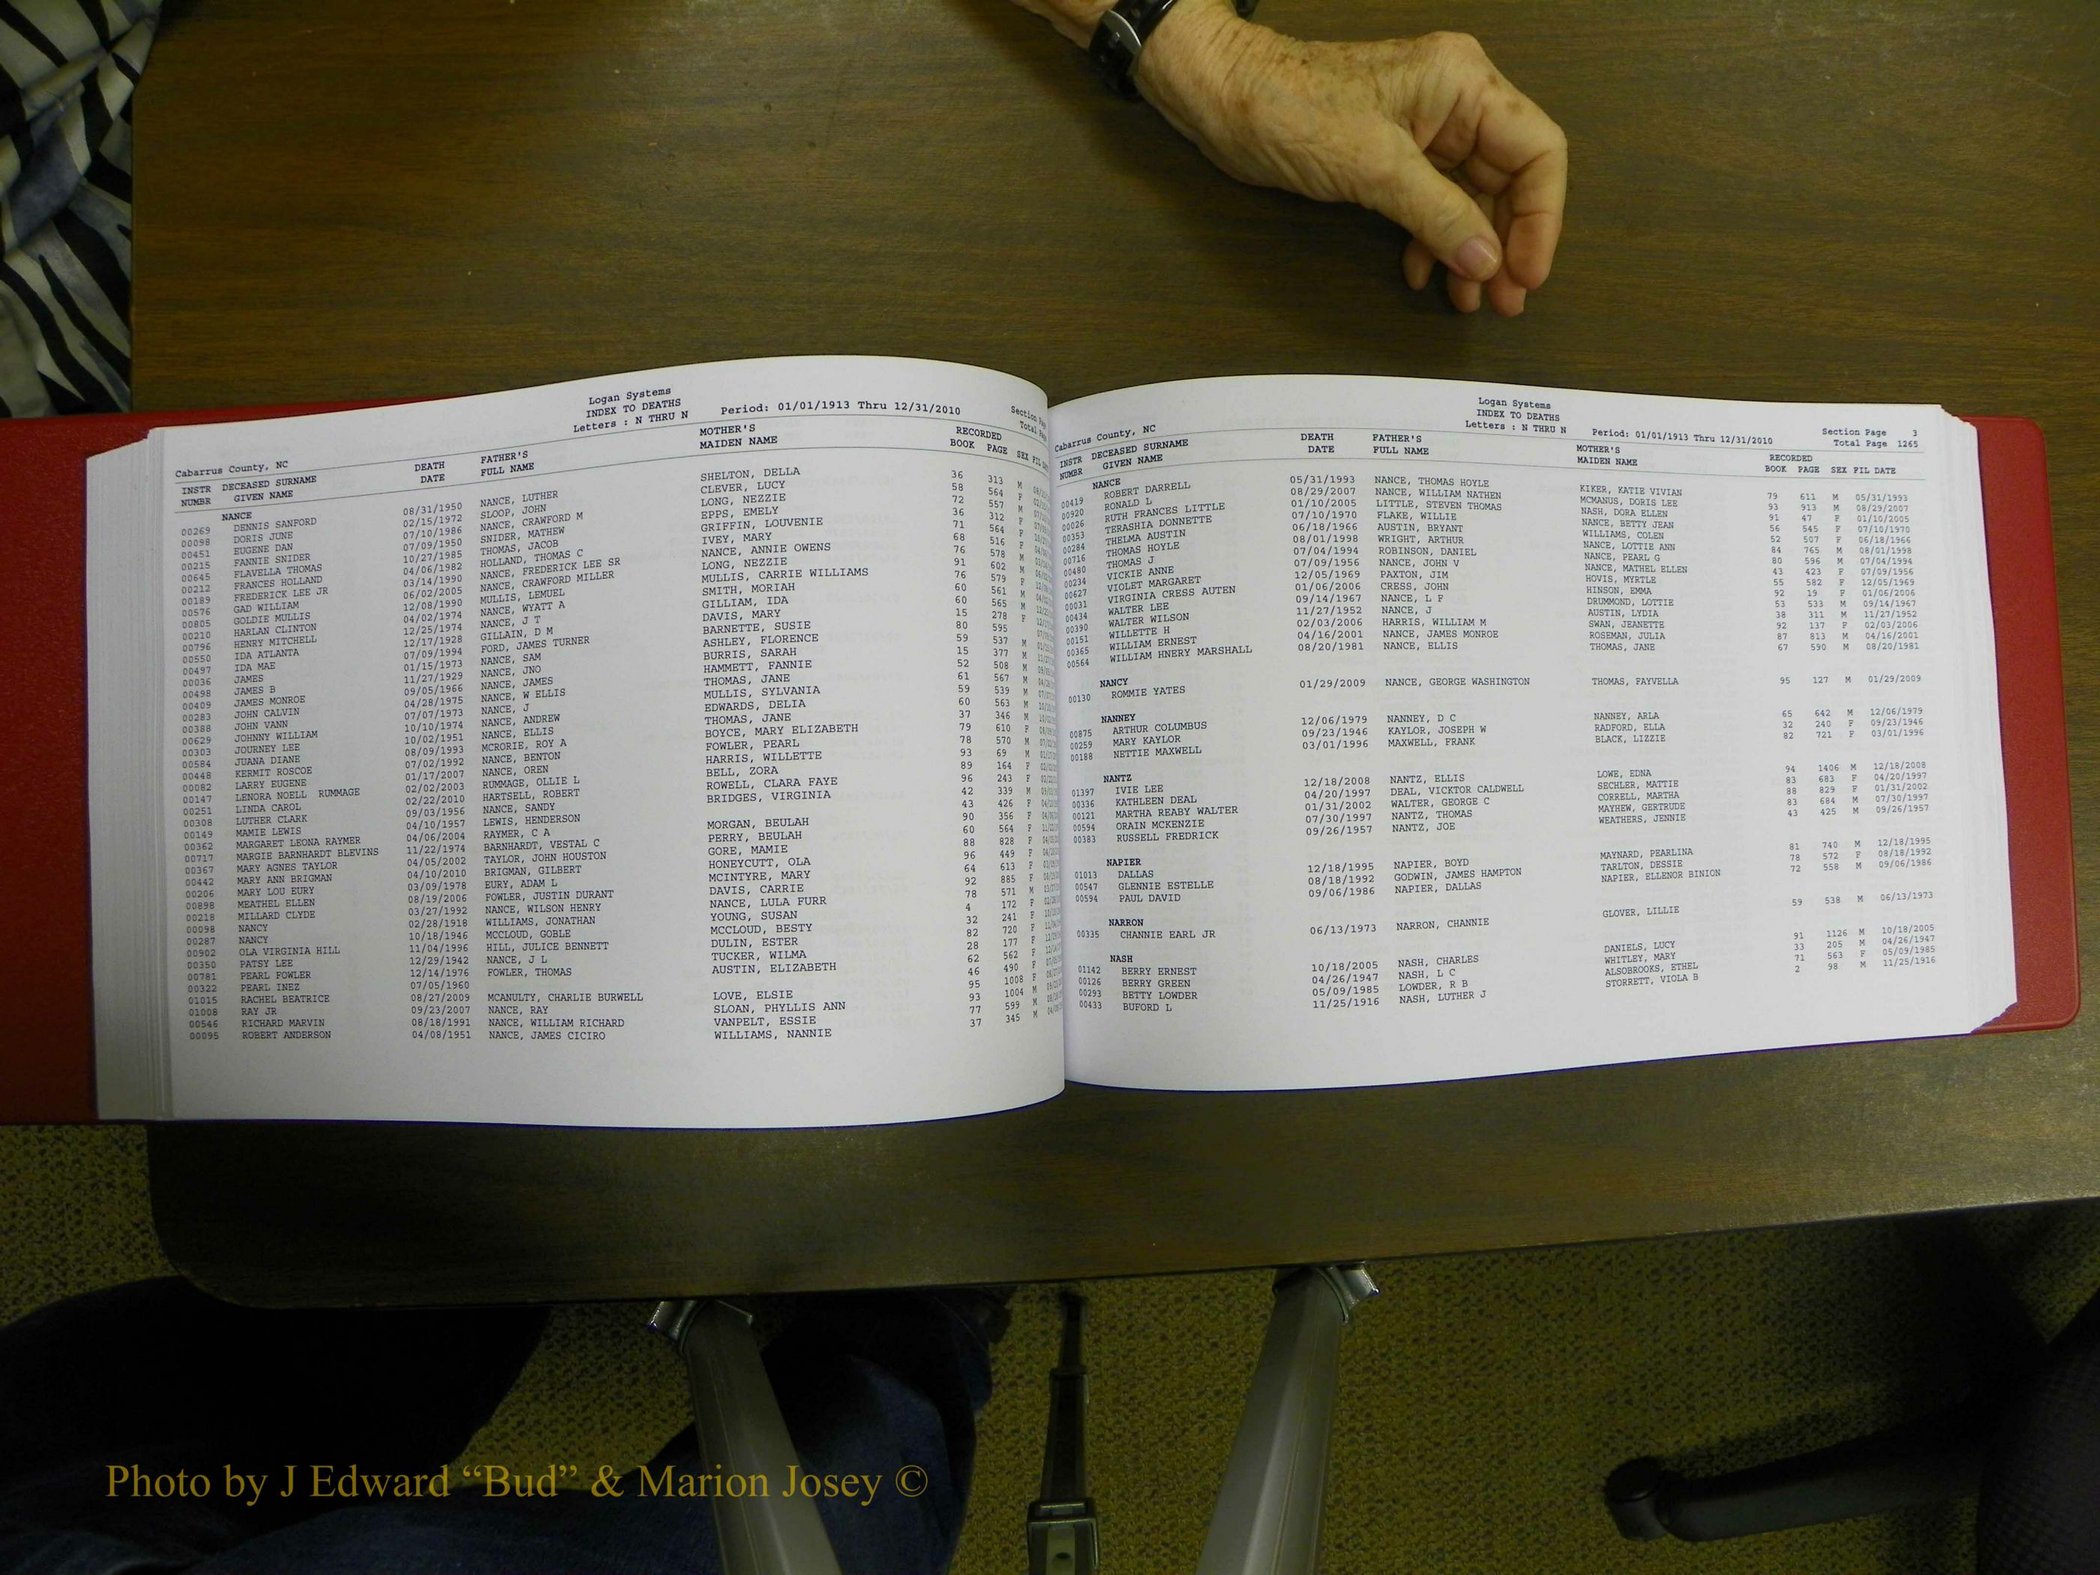 Logan Systems
INDEX TO DEATHS
Letters : N THRU N Period: 01/01/1913 Thru 12/31/2010
Cabarrus County, NC
INSTR DECEASED SURNAME DEATH FATHER'S MOTHER'S RECORDED
NUMBR GIVEN NAME DATE FULL NAME MAIDEN NAME BOOK PAGE SEX
NANCE
00269 DENNIS SANFORD 08/31/1950 NANCE, LUTHER SHELTON, DELLA 36 313 M
00098 DORIS JUNE 02/15/1972 SLOOP, JOHN CLEVER, LUCY 58 564 F
00451 EUGENE DAN 07/10/1986 NANCE, CRAWFORD M LONG, NEZZIE 72 557 M
00215 FANNIE SNIDER 07/09/1950 SNIDER, MATHEW EPPS, EMELY 36 312 F
00645 FLAVELLA THOMAS 10/27/1985 THOMAS, JACOB GRIFFIN, LOUVENIE 71 564 F
00212 FRANCES HOLLAND 04/06/1982 HOLLAND, THOMAS C IVEY, MARY 68 516 F
00189 FREDERICK LEE JR 03/14/1990 NANCE, FREDERICK LEE SR NANCE, ANNIE OWENS 76 578 M
00576 GAD WILLIAM 06/02/2005 NANCE, CRAWFORD MILLER LONG, NEZZIE 91 602 M
00805 GOLDIE MULLIS 12/08/1990 MULLIS, LEMUEL MULLIS, CARRIE WILLIAMS 76 579 F
00210 HARLAN CLINTON 04/02/1974 NANCE, WYATT A SMITH, MORIAH 60 561 M
00796 HENRY MITCHELL 12/25/1974 NANCE, J T GILLIAM, IDA 60 565 M
00550 IDA ATLANTA 12/17/1928 GILLAIN, D M DAVIS, MARY 15 278 F
00497 IDA MAE 07/09/1994 FORD, JAMES TURNER BARNETTE, SUSIE 80 595
00036 JAMES 01/15/1973 NANCE, SAM ASHLEY, FLORENCE 59 537 M
00498 JAMES B 11/27/1929 NANCE, JNO BURRIS, SARAH 15 377 M
00409 JAMES MONROE 09/05/1966 NANCE, JAMES HAMMETT, FANNIE 52 508 M
00283 JOHN CALVIN 04/28/1975 NANCE, W ELLIS THOMAS, JANE 61 567 M
00388 JOHN VANN 07/07/1973 NANCE, J MULLIS, SYLVANIA 59 539 M
00629 JOHNNY WILLIAM 10/10/1974 NANCE, ANDREW EDWARDS, DELIA 60 563 M
00303 JOURNEY LEE 10/02/1951 NANCE, ELLIS THOMAS, JANE 37 346 M
00584 JUANA DIANE 08/09/1993 MCRORIE, ROY A BOYCE, MARY ELIZABETH 79 610 F
00448 KERMIT ROSCOE 07/02/1992 NANCE, BENTON FOWLER, PEARL 78 570 M
00082 LARRY EUGENE 01/17/2007 NANCE, OREN HARRIS, WILLETTE 93 69 M
00147 LENORA NOELL RUMMAGE 02/02/2003 RUMMAGE, OLLIE L BELL, ZORA 89 164 F
00251 LINDA CAROL 02/22/2010 HARTSELL, ROBERT ROWELL, CLARA FAYE 96 243 F
00308 LUTHER CLARK 09/03/1956 NANCE, SANDY BRIDGES, VIRGINIA 42 339 M
00149 MAMIE LEWIS 04/10/1957 LEWIS, HENDERSON 43 426 F
00362 MARGARET LEONA RAYMER 04/06/2004 RAYMER, C A MORGAN, BEULAH 90 356 F
00717 MARGIE BARNHARDT BLEVINS 11/22/1974 BARNHARDT, VESTAL C PERRY, BEULAH 60 564 F
00367 MARY AGNES TAYLOR 04/05/2002 TAYLOR, JOHN HOUSTON GORE, MAMIE 88 828 F
00442 MARY ANN BRIGMAN 04/10/2010 BRIGMAN, GILBERT HONEYCUTT, OLA 96 449 F
00206 MARY LOU EURY 03/09/1978 EURY, ADAM L MCINTYRE, MARY 64 613 F
00898 MEATHEL ELLEN 08/19/2006 FOWLER, JUSTIN DURANT DAVIS, CARRIE 92 885 F
00218 MILLARD CLYDE 03/27/1992 NANCE, WILSON HENRY NANCE, LULA FURR 78 571 M
00098 NANCY 02/28/1918 WILLIAMS, JONATHAN YOUNG, SUSAN 4 172 F
00287 NANCY 10/18/1946 MCCLOUD, GOBLE MCCLOUD, BESTY 32 241 F
00902 OLA VIRGINIA HILL 11/04/1996 HILL, JULICE BENNETT DULIN, ESTER 82 720 F
00350 PATSY LEE 12/29/1942 NANCE, J L TUCKER, WILMA 28 177 F
00781 PEARL FOWLER 12/14/1976 FOWLER, THOMAS AUSTIN, ELIZABETH 62 562 F
00322 PEARL INEZ 07/05/1960 46 490 F
01015 RACHEL BEATRICE 08/27/2009 MCANULTY, CHARLIE BURWELL LOVE, ELSIE 95 1008 F
01008 RAY JR 09/23/2007 NANCE, RAY SLOAN, PHYLLIS ANN 93 1004 M
00546 RICHARD MARVIN 08/18/1991 NANCE, WILLIAM RICHARD VANPELT, ESSIE 77 599 M
00095 ROBERT ANDERSON 04/08/1951 NANCE, JAMES CICIRO WILLIAMS, NANNIE 37 345 M
Logan Systems
INDEX TO DEATHS
Letters : N THRU N Period: 01/01/1913 Thru 12/31/2010 Section Page 3
Cabarrus County, NC Total Page 1265
INSTR DECEASED SURNAME DEATH FATHER'S MOTHER'S RECORDED
NUMBR GIVEN NAME DATE FULL NAME MAIDEN NAME BOOK PAGE SEX FIL DATE
NANCE
00419 ROBERT DARRELL 05/31/1993 NANCE, THOMAS HOYLE KIKER, KATIE VIVIAN 79 611 M 05/31/1993
00920 RONALD L 08/29/2007 NANCE, WILLIAM NATHEN MCMANUS, DORIS LEE 93 913 M 08/29/2007
00026 RUTH FRANCES LITTLE 01/10/2005 LITTLE, STEVEN THOMAS NASH, DORA ELLEN 91 47 F 01/10/2005
00353 TERASHIA DONNETTE 07/10/1970 FLAKE, WILLIE NANCE, BETTY JEAN 56 545 F 07/10/1970
00284 THELMA AUSTIN 06/18/1966 AUSTIN, BRYANT WILLIAMS, COLEN 52 507 F 06/18/1966
00716 THOMAS HOYLE 08/01/1998 WRIGHT, ARTHUR NANCE, LOTTIE ANN 84 765 M 08/01/1998
00480 THOMAS J 07/04/1994 ROBINSON, DANIEL NANCE, PEARL G 80 596 M 07/04/1994
00234 VICKIE ANNE 07/09/1956 NANCE, JOHN V NANCE, MATHEL ELLEN 43 423 F 07/09/1956
00627 VIOLET MARGARET 12/05/1969 PAXTON, JIM HOVIS, MYRTLE 55 582 F 12/05/1969
00031 VIRGINIA CRESS AUTEN 01/06/2006 CRESS, JOHN HINSON, EMMA 92 19 F 01/06/2006
00434 WALTER LEE 09/14/1967 NANCE, L F DRUMMOND, LOTTIE 53 533 M 09/14/1967
00390 WALTER WILSON 11/27/1952 NANCE, J AUSTIN, LYDIA 38 311 M 11/27/1952
00151 WILLETTE H 02/03/2006 HARRIS, WILLIAM M SWAN, JEANETTE 92 137 F 02/03/2006
00365 WILLIAM ERNEST 04/16/2001 NANCE, JAMES MONROE ROSEMAN, JULIA 87 813 M 04/16/2001
00564 WILLIAM HNERY MARSHALL 08/20/1981 NANCE, ELLIS THOMAS, JANE 67 590 M 08/20/1981
NANCY
00130 ROMMIE YATES 01/29/2009 NANCE, GEORGE WASHINGTON THOMAS, FAYVELLA 95 127 M 01/29/2009
NANNEY
00875 ARTHUR COLUMBUS 12/06/1979 NANNEY, D C NANNEY, ARLA 65 642 M 12/06/1979
00259 MARY KAYLOR 09/23/1946 KAYLOR, JOSEPH W RADFORD, ELLA 32 240 F 09/23/1946
00188 NETTIE MAXWELL 03/01/1996 MAXWELL, FRANK BLACK, LIZZIE 82 721 F 03/01/1996
NANTZ
01397 IVIE LEE 12/18/2008 NANTZ, ELLIS LOWE, EDNA 94 1406 M 12/18/2008
00336 KATHLEEN DEAL 04/20/1997 DEAL, VICKTOR CALDWELL SECHLER, MATTIE 83 683 F 04/20/1997
00121 MARTHA REABY WALTER 01/31/2002 WALTER, GEORGE C CORRELL, MARTHA 88 829 F 01/31/2002
00594 ORAIN MCKENZIE 07/30/1997 NANTZ, THOMAS MAYHEW, GERTRUDE 83 684 M 07/30/1997
00383 RUSSELL FREDRICK 09/26/1957 NANTZ, JOE WEATHERS, JENNIE 43 425 M 09/26/1957
NAPIER
01013 DALLAS 12/18/1995 NAPIER, BOYD MAYNARD, PEARLINA 81 740 M 12/18/1995
00547 GLENNIE ESTELLE 08/18/1992 GODWIN, JAMES HAMPTON TARLTON, DESSIE 78 572 F 08/18/1992
00594 PAUL DAVID 09/06/1986 NAPIER, DALLAS NAPIER, ELLENOR BINION 72 558 M 09/06/1986
NARRON
00335 CHANNIE EARL JR 06/13/1973 NARRON, CHANNIE GLOVER, LILLIE 59 538 M 06/13/1973
NASH
01142 BERRY ERNEST 10/18/2005 NASH, CHARLES DANIELS, LUCY 91 1126 M 10/18/2005
00126 BERRY GREEN 04/26/1947 NASH, L C WHITLEY, MARY 33 205 M 04/26/1947
00293 BETTY LOWDER 05/09/1985 LOWDER, R B ALSOBROOKS, ETHEL 71 563 F 05/09/1985
00433 BUFORD L 11/25/1916 NASH, LUTHER J STORRETT, VIOLA B 2 98 M 11/25/1916
Photo by J Edward “Bud” & Marion Josey ©